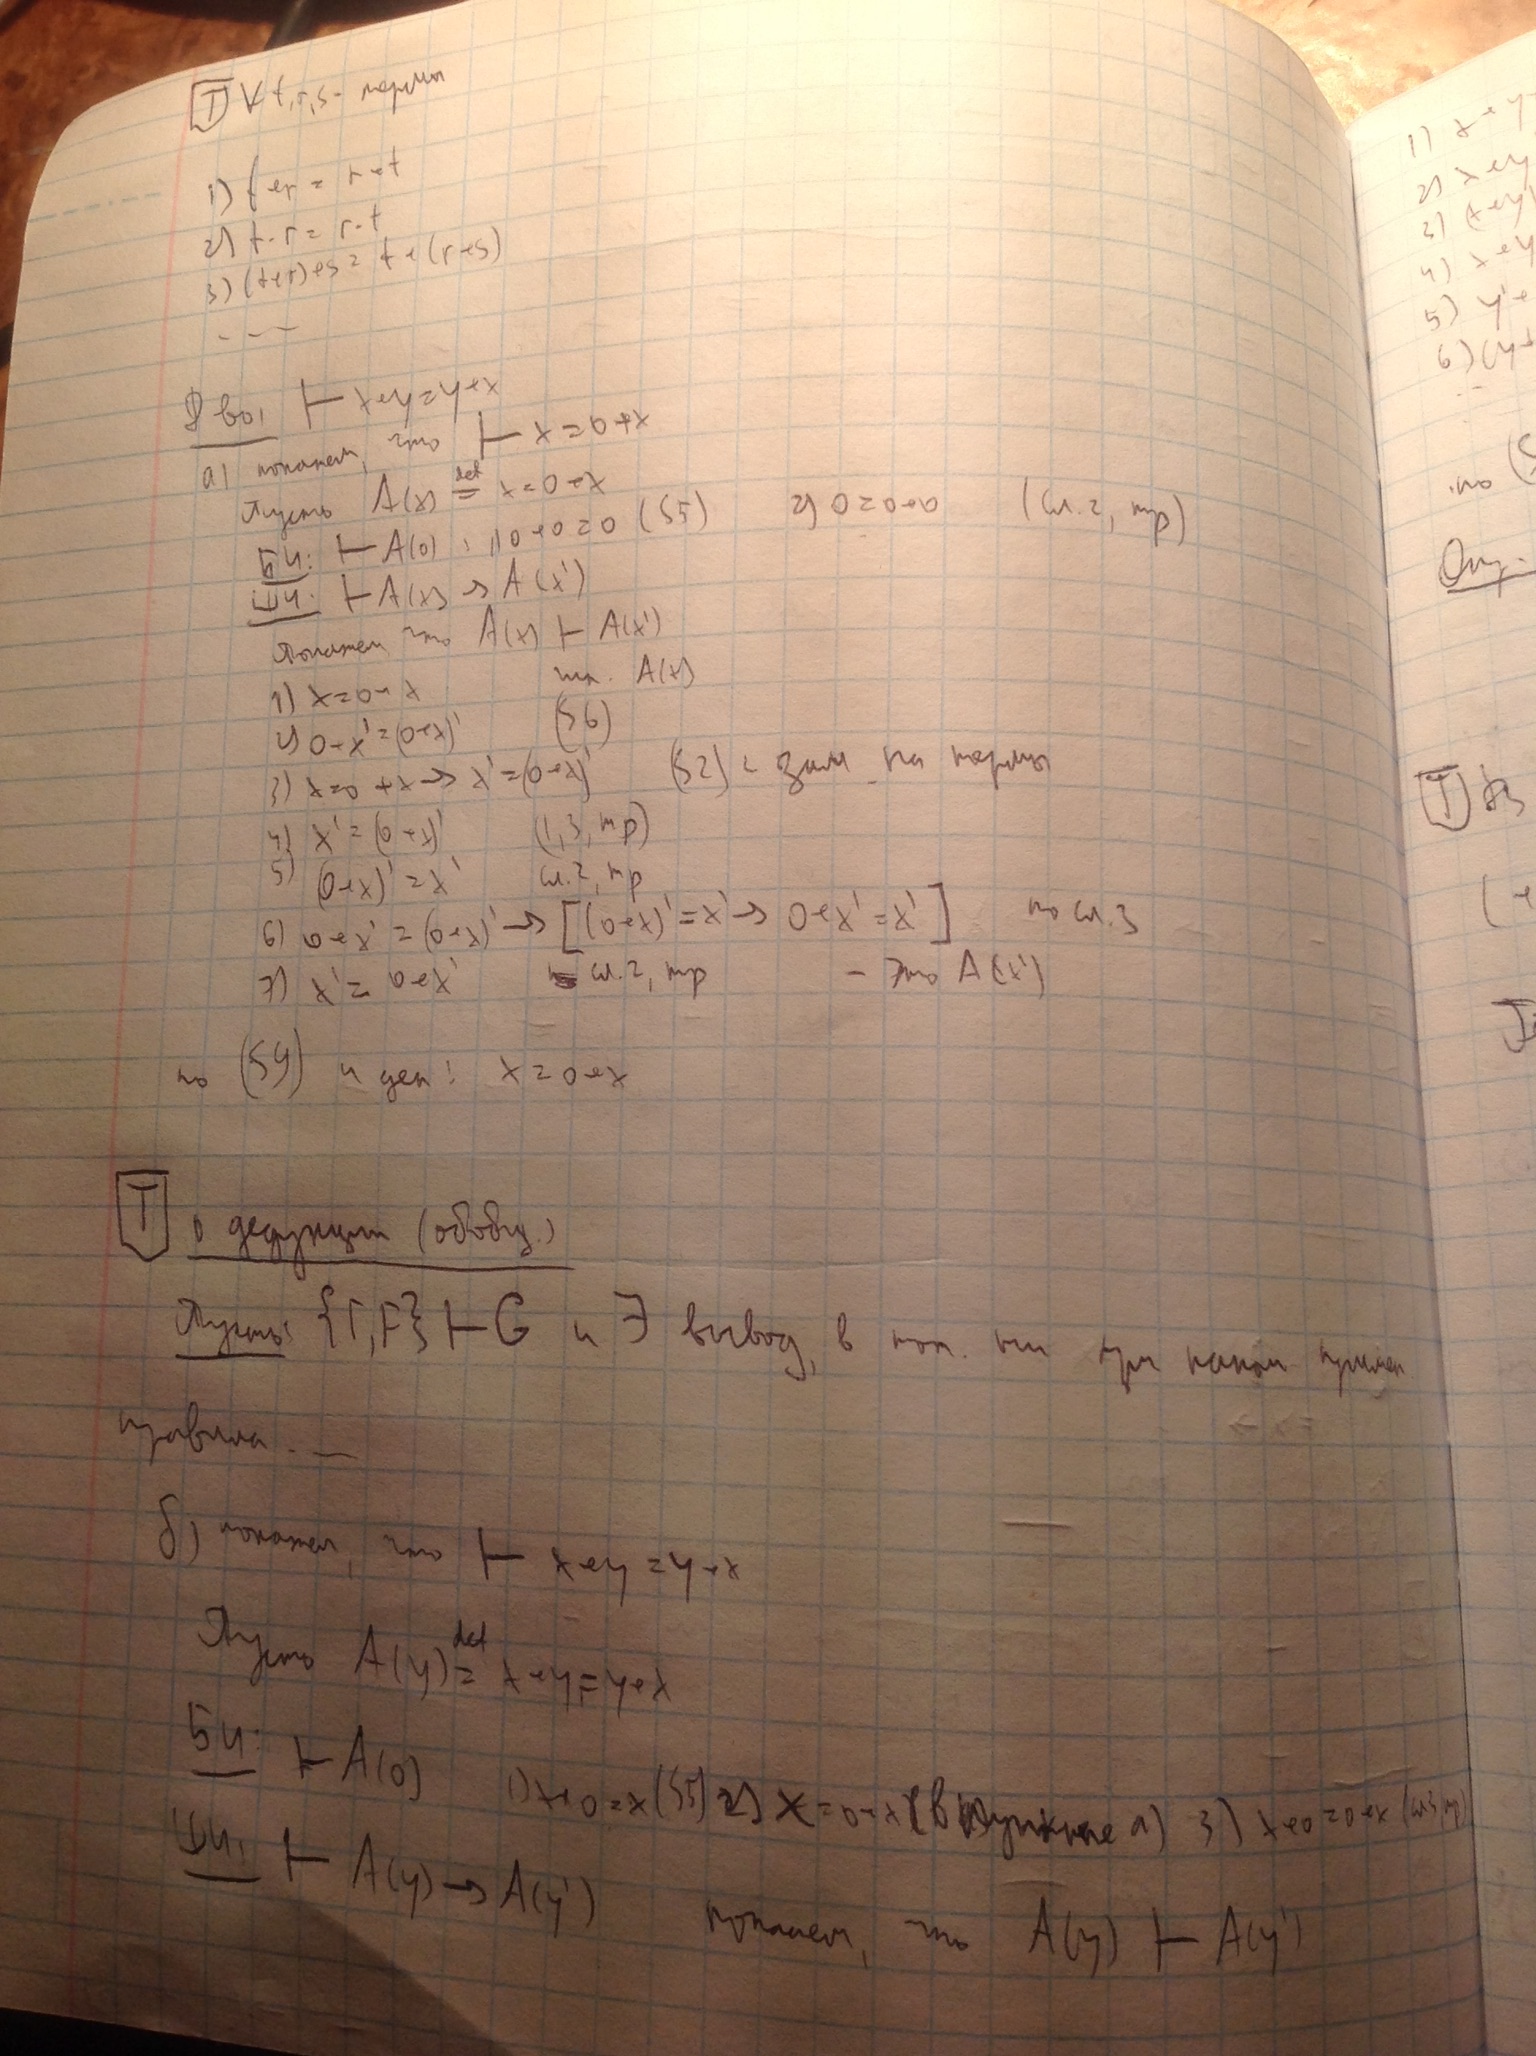 Т ∀ t, r, s - термы
1) t+r = r+t
2) t·r = r·t
3) (t+r)+s = t+(r+s)
- - -
Д-во: ⊢ x+y=y+x
а) покажем, что ⊢ x=0+x
Пусть A(x) def= x=0+x
БИ: ⊢ A(0): 1) 0+0=0 (S5) 2) 0=0+0 (сл.2, mp)
ШИ: ⊢ A(x) → A(x')
Покажем что A(x) ⊢ A(x')
1) x=0+x A(x)
2) 0+x'=(0+x)' (S6)
3) x=0+x → x'=(0+x)' (S2) зам. на термы
4) x'=(0+x)' (1,3,mp)
5) (0+x)'=x' сл.2, mp
6) 0+x'=(0+x)' → [(0+x)'=x' → 0+x'=x'] по сл.3
7) x'=0+x' сл.2, mp - это A(x')
по (S9) и x=0+x
Т о дедукции (обобщ.)
Пусть: {Г,F} ⊢ G и ∃ вывод, в кот. ни при каком примен.
правила - —
б) покажем, что ⊢ x+y=y+x
Пусть A(y) def= x+y=y+x
БИ: ⊢ A(0) 1) x+0=x (S5) 2) x=0+x (в пункте а) 3) x+0=0+x (сл.3, mp)
ШИ: ⊢ A(y) → A(y') покажем, что A(y) ⊢ A(y')
1) x+y
2) x+y
3) (x+y)
4) x+y
5) y'+
6) (y+
по (S
Опр.
Т